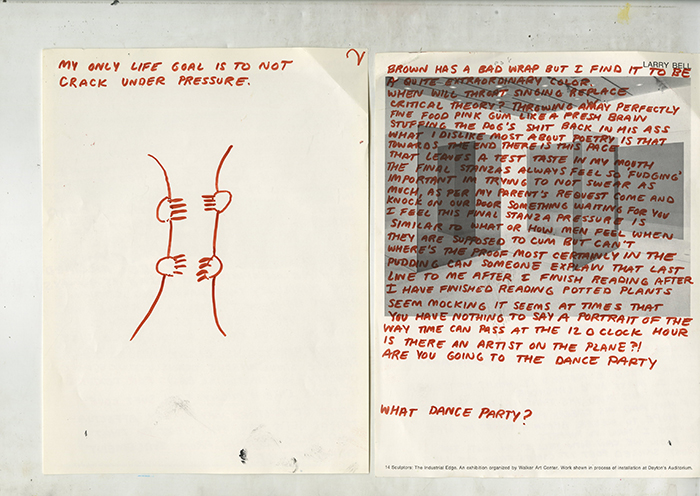 MY ONLY LIFE GOAL IS TO NOT
CRACK UNDER PRESSURE.
2
LARRY BELL
BROWN HAS A BAD WRAP BUT I FIND IT TO BE
A QUITE EXTRAORDINARY COLOR.
WHEN WILL THROAT SINGING REPLACE
CRITICAL THEORY? THROWING AWAY PERFECTLY
FINE FOOD PINK GUM LIKE A FRESH BRAIN
STUFFING THE DOG'S SHIT BACK IN HIS ASS
WHAT I DISLIKE MOST ABOUT POETRY IS THAT
TOWARDS THE END THERE IS THIS PAGE
THAT LEAVES A TEST TASTE IN MY MOUTH
THE FINAL STANZAS ALWAYS FEEL SO 'FUDGING'
IMPORTANT IM TRYING TO NOT SWEAR AS
MUCH, AS PER MY PARENT'S REQUEST COME AND
KNOCK ON OUR DOOR SOMETHING WAITING FOR YOU
I FEEL THIS FINAL STANZA PRESSURE IS
SIMILAR TO WHAT OR HOW MEN FEEL WHEN
THEY ARE SUPPOSED TO CUM BUT CAN'T
WHERE'S THE PROOF MOST CERTAINLY IN THE
PUDDING CAN SOMEONE EXPLAIN THAT LAST
LINE TO ME AFTER I FINISH READING AFTER
I HAVE FINISHED READING POTTED PLANTS
SEEM MOCKING IT SEEMS AT TIMES THAT
YOU HAVE NOTHING TO SAY A PORTRAIT OF THE
WAY TIME CAN PASS AT THE 12 O CLOCK HOUR
IS THERE AN ARTIST ON THE PLANE?!
ARE YOU GOING TO THE DANCE PARTY
WHAT DANCE PARTY?
14 Sculpture: The Industrial Edge. An exhibition organized by Walker Art Center. Work shown in process of installation at Dayton's Auditorium.